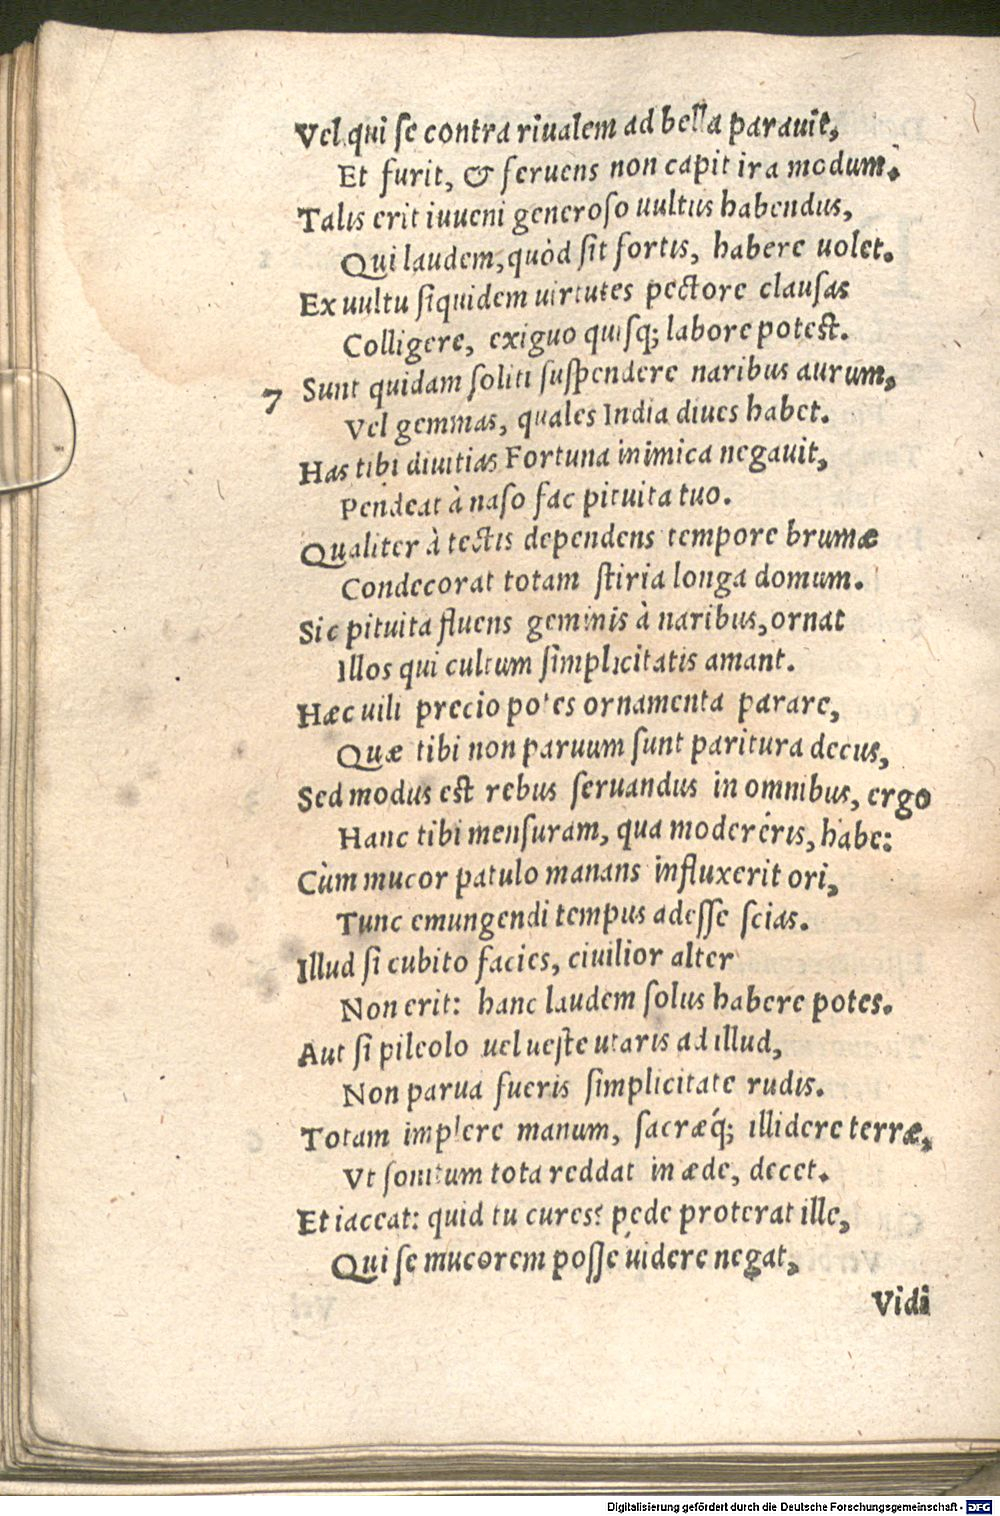 Vel qui se contra riualem ad bella parauit,
Et furit, & feruens non capit ira modum.
Talis erit iuueni generoso uultus habendus,
Qui laudem, quòd sit fortis, habere uolet.
Ex uultu siquidem uirtutes pectore clausas
Colligere, exiguo quisq; labore potest.
7 Sunt quidam soliti suspendere naribus aurum,
Vel gemmas, quales India diues habet.
Has tibi diuitias Fortuna inimica negauit,
Pendeat à naso fac pituita tuo.
Qualiter à tectis dependens tempore brumæ
Condecorat totam stiria longa domum.
Sic pituita fluens geminis à naribus, ornat
Illos qui cultum simplicitatis amant.
Hæc uili precio potes ornamenta parare,
Quæ tibi non paruum sunt paritura decus,
Sed modus est rebus seruandus in omnibus, ergo
Hanc tibi mensuram, qua moderéris, habe:
Cùm mucor patulo manans influxerit ori,
Tunc emungendi tempus adesse scias.
Illud si cubito facies, ciuilior alter
Non erit: hanc laudem solus habere potes.
Aut si pileolo uel ueste utaris ad illud,
Non parua fueris simplicitate rudis.
Totam implere manum, sacræq́; illidere terræ,
Vt sonitum tota reddat in æde, decet.
Et iaceat: quid tu cures? pede proterat ille,
Qui se mucorem posse uidere negat,
Vidi
Digitalisierung gefördert durch die Deutsche Forschungsgemeinschaft - DFG